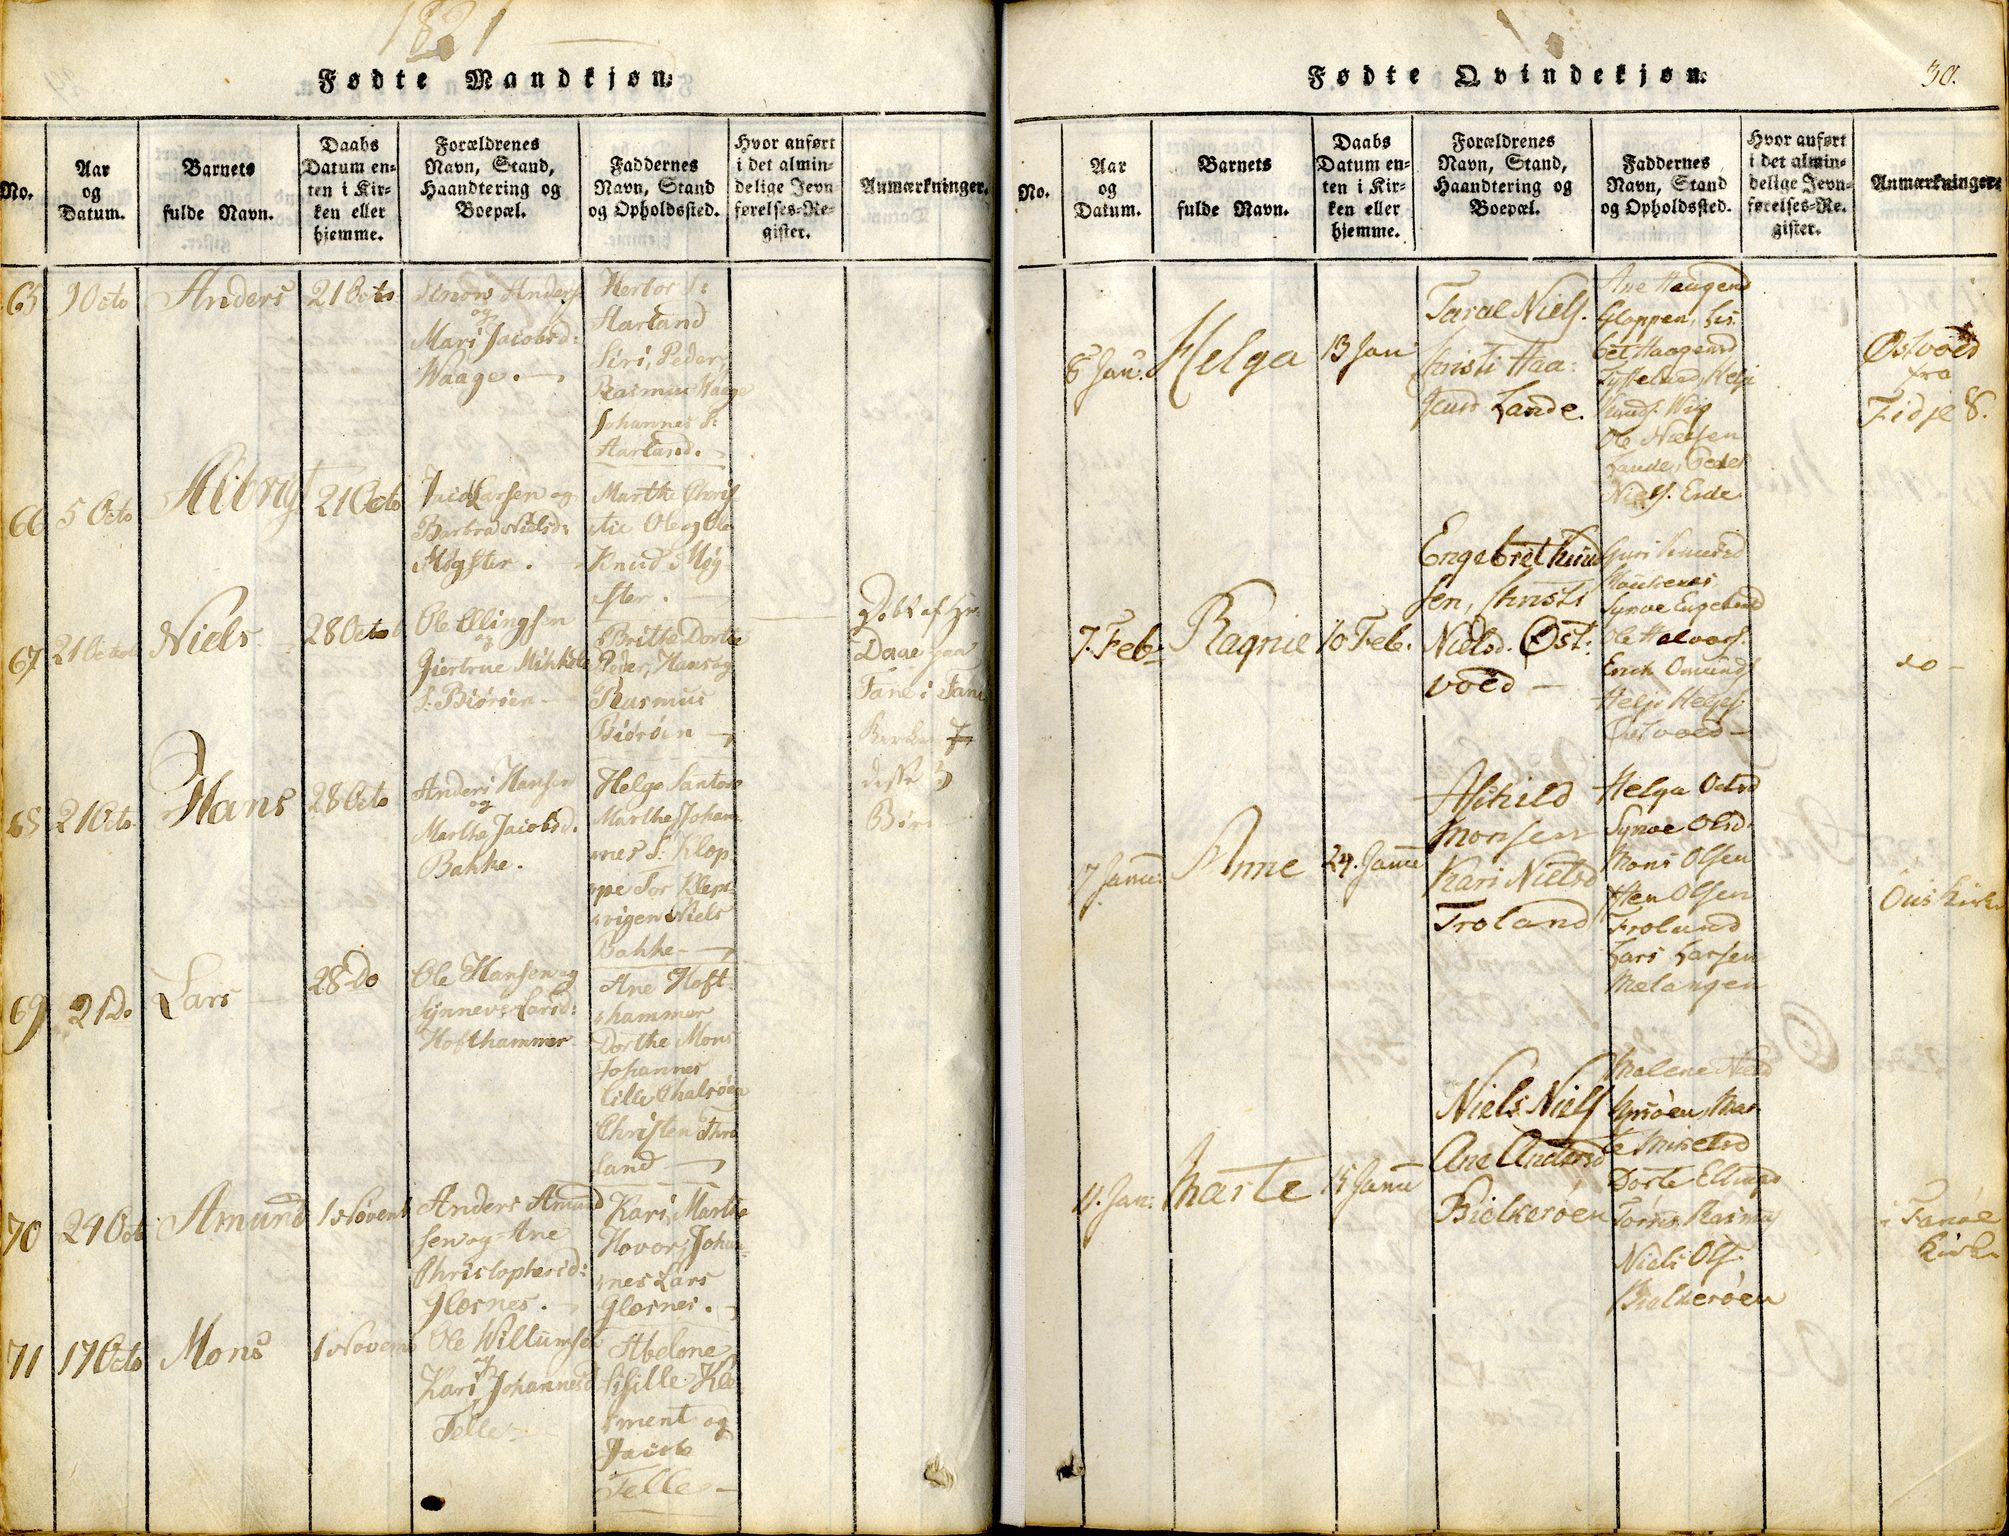 1821
Fødte Mandkjøn.
No.
Aar
og
Datum.
Barnets
fulde Navn.
Daabs
Datum en-
ten i Kir-
ken eller
hjemme.
Forældrenes
Navn, Stand,
Haandtering og
Boepæl.
Faddernes
Navn, Stand
og Opholdssted.
Hvor anført
i det almin-
delige Jevn-
førelses-Re-
gister.
Anmærkninger.
65
9 Octo
Anders
21 Octo
Simon Anders
og
Mari Jacobsd:
Waage.
Aarland
Siri, Peder,
Rasmus Waage
Johannes S:
Aarland.
66
5 Octo
21 Octo
Jacob Larsen og
Barbra Nielsd:
Møgster.
Marthe Chris
tie Ole og Ole
Knud Møg
ster.
67
21 Octo
Niels
28 Octo
Ole Ellingsen
og
Giertrue Mikkels
d: Biöröen
Britte Dorthe
Peder, Hans og
Rasmus
Biöröen
Døbt af Hr.
Daae paa
Fane i Fane
68
21 Octo.
Hans
28 Octo
Anders Hansen
og
Marthe Jacobsd.
Bakke.
Helge
Marthe Johan
nes S: Klop
pe Tor Klep
vigen Niels
Bakke
69
21 Do
Lars
28 Do
Ole Hansen og
Synneve Larsd:
Hofthammer
Ane Hoft:
hammer
Dorthe Mons
Johannes
Lille Chalsöen
Christen
land
70
24 Oct
Amund
1 Novemb
Anders Amund
sen og Ane
Christophersd:
Glæsnes.
Kari, Marthe
Hovor, Johan-
nes Lars
Glæsnes.
71
17 Octo
Mons
1 Novemb
Ole Willumsen
og
Kari Johannesd
Telle
Abelone
Sisille Kle
ment og
Jacob
Telle
Fødte Qvindekjøn.
30.
No.
Aar
og
Datum.
Barnets
fulde Navn.
Daabs
Datum en-
ten i Kir-
ken eller
hjemme.
Forældrenes
Navn, Stand,
Haandtering og
Boepæl.
Faddernes
Navn, Stand
og Opholdssted.
Hvor anført
i det almin-
delige Jevn-
førelses-Re.
gister.
Anmærkninger.
6 Jan.
Helga
13 Jan
Taral Niels.
Christi Haa:
Lande.
Ane Haugend
Gloppen, Lis:
bet Haagensd
Ole Nielsen
Lande, Peder
Niels. Eide
Østvoed
fra
7. Feb.
Ragnie
10 Feb.
Engebret Knud
sen, Christi
Nielsd. Øst:
voed
Guri
Synøe Engebretsd
Ole Halvors.
Erich Omunds
Helje Helges
Østvoed
do
7 Janu:
Anne
24. Janu
Monsen
Kari Nielsd
Troland
Helga Olesd
Synøe Olsd.
Mons Olsen
Olsen
Troland
Lars Larsen
Mælangen
Ous Kirke
4. Jan:
Marte
15 Janu
Niels Niels
Ane Andersd
Bielkerøen
Malene Nielsd
Dorte Ellingsd
Rasmus
Niels Ols.
Bielkerøen
i Fanøe
Kirke